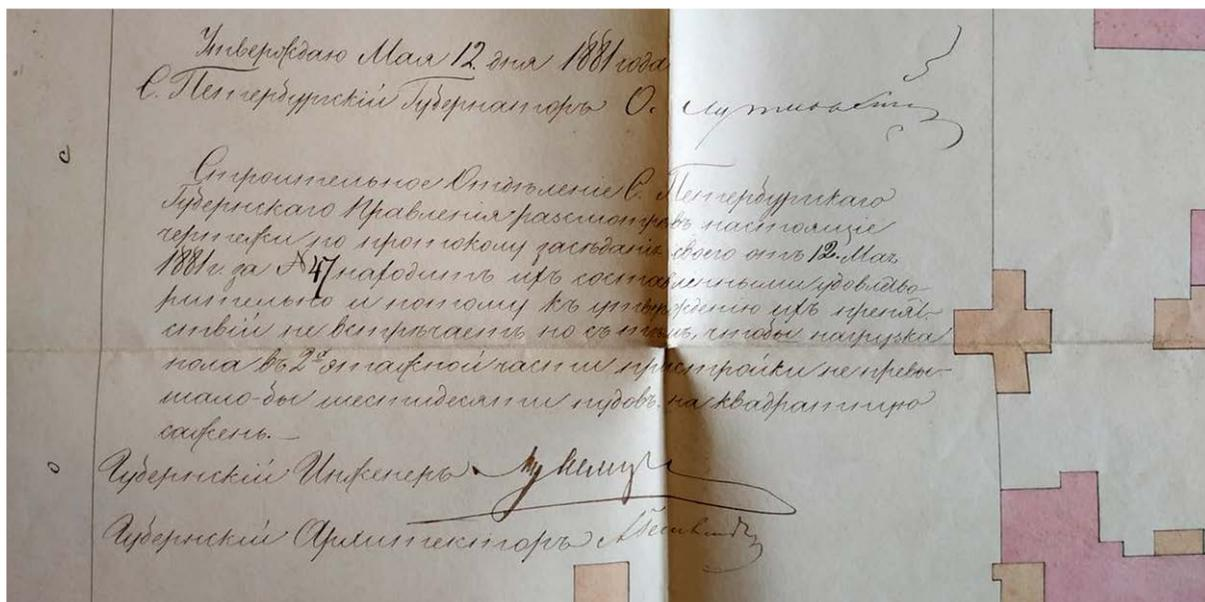 Утверждаю Мая 12 дня 1881 года
С. Петербургскій Губернаторъ
Строительное Отдѣленіе С. Петербургскаго
Губернскаго Правленія разсмотрѣвъ настоящіе
чертежи по протоколу засѣданія своего отъ 12 Мая
1881 г. за № 47 находитъ ихъ составленными удовлетво-
рительно и потому къ утвержденію ихъ препят-
ствій не встрѣчаетъ но съ тѣмъ, чтобы нагрузка
пола въ 2хъ этажной части пристройки не превы-
шало-бы шестидесяти пудовъ на квадратную
сажень.
Губернскій Инженеръ
Губернскій Архитекторъ
с
о